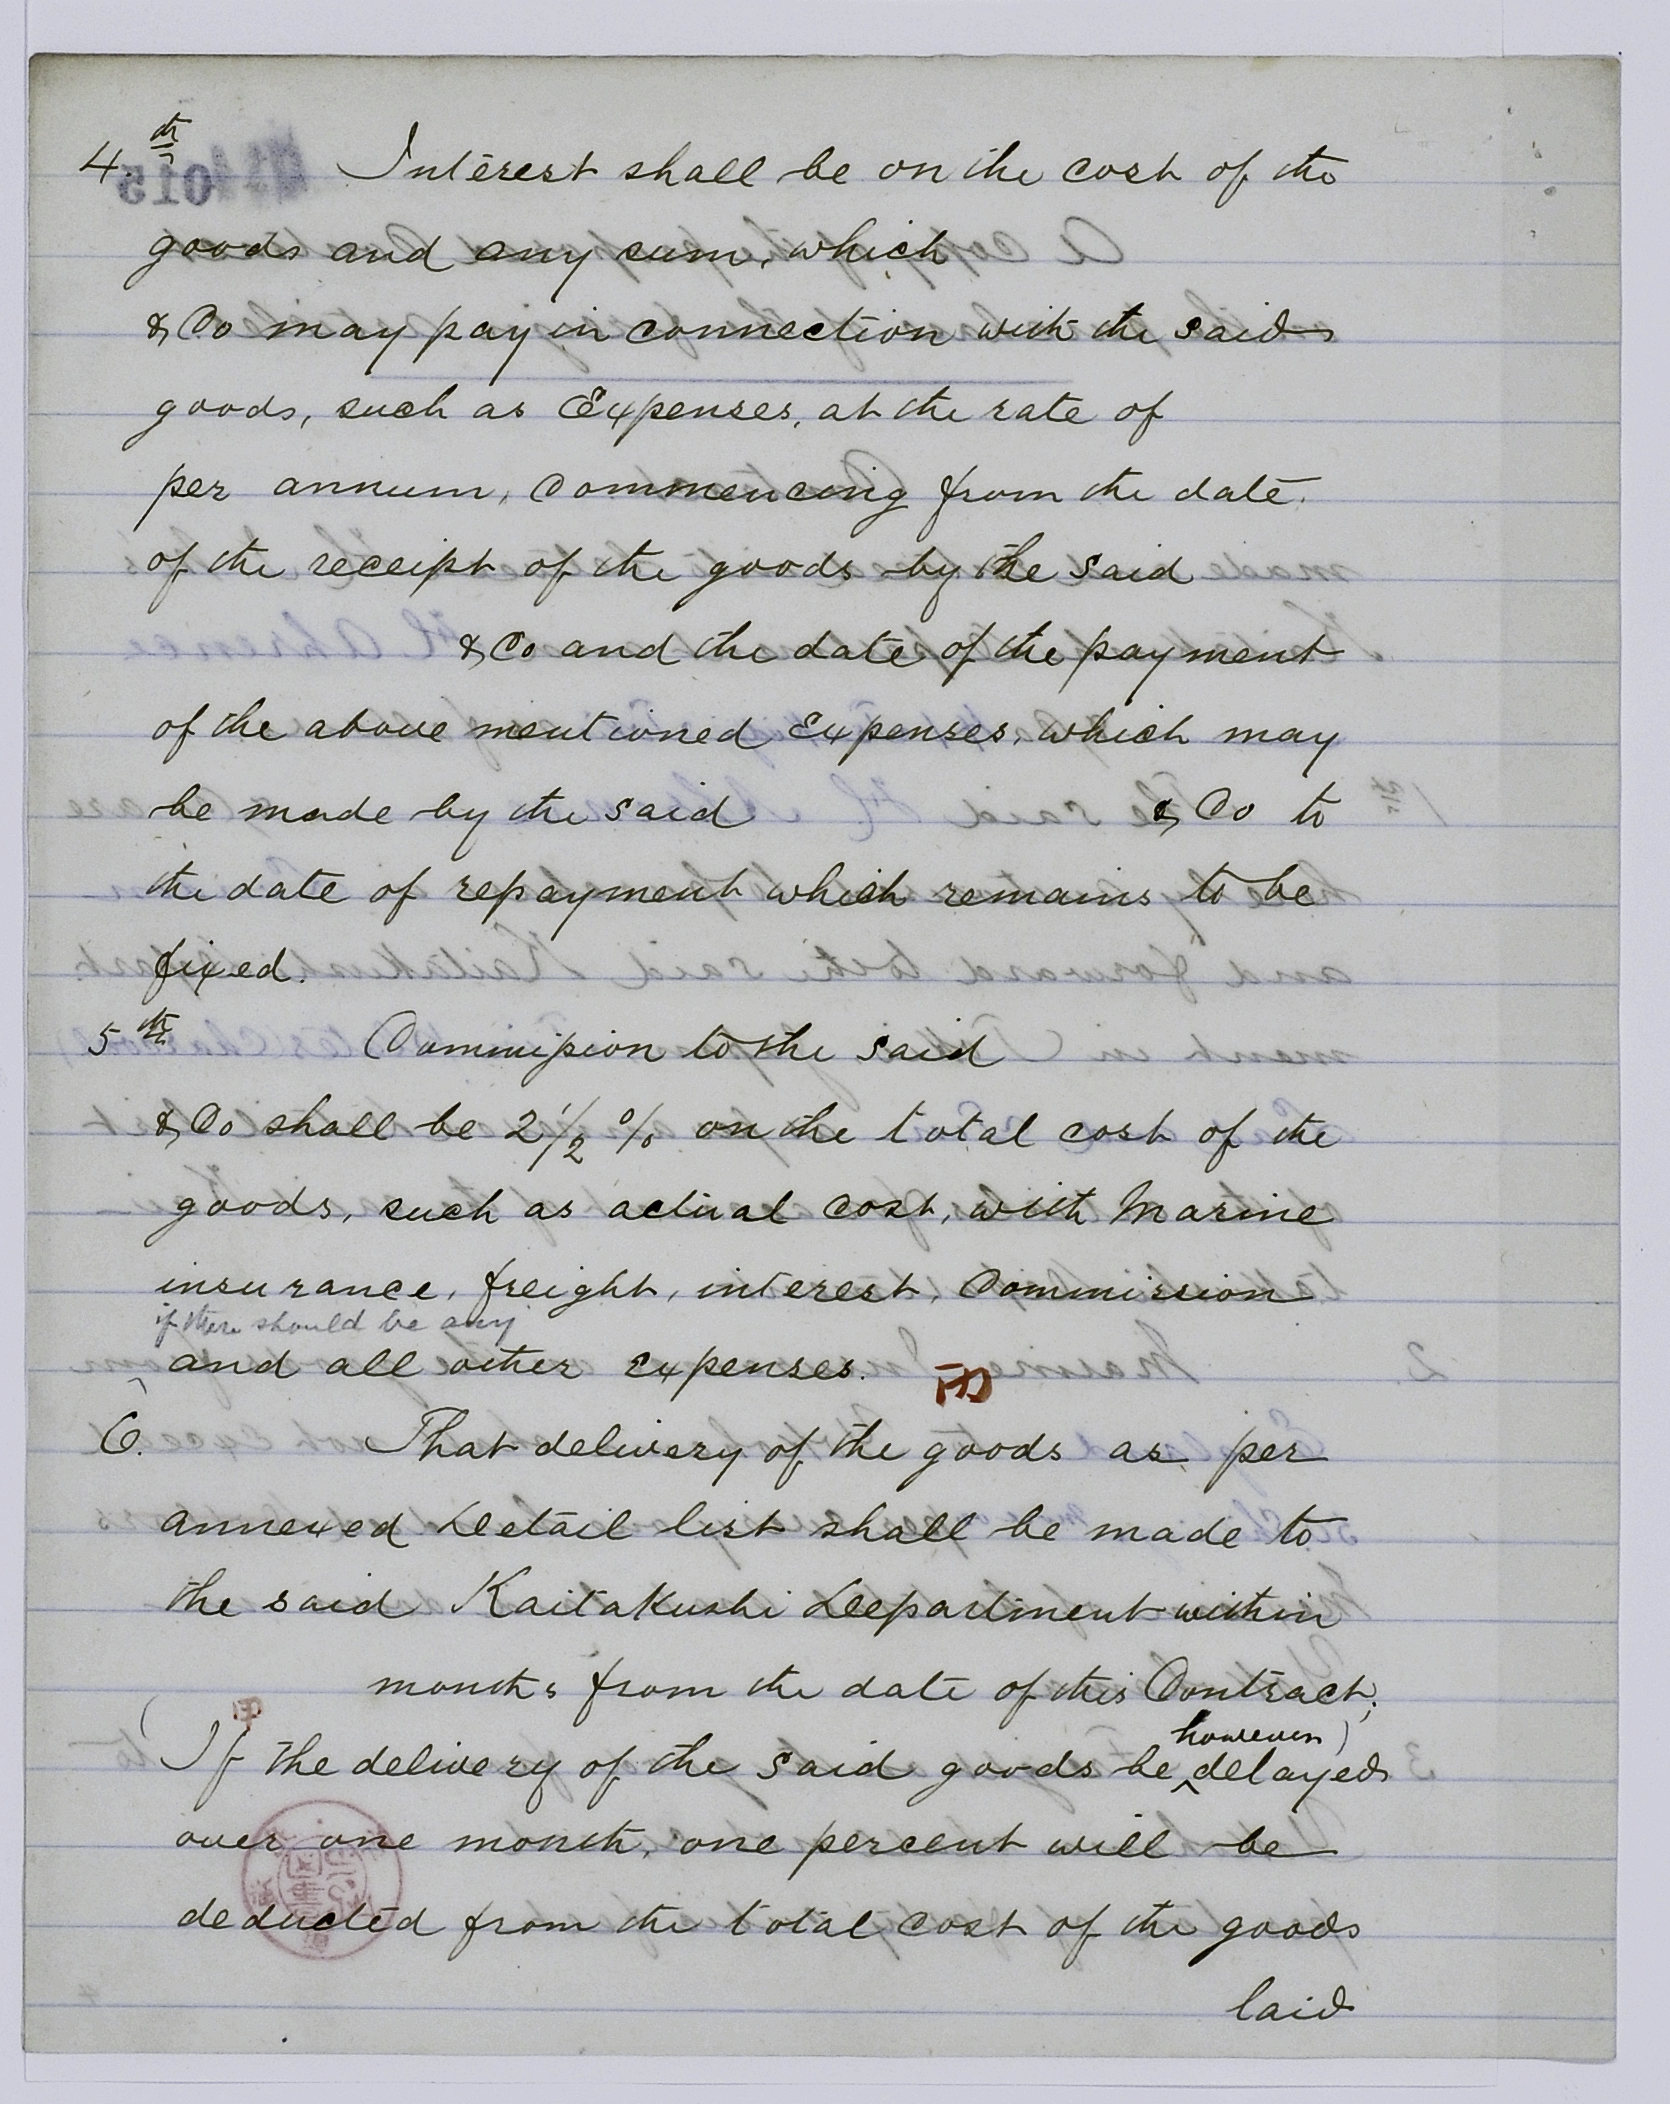 4th Interest shall be on the cost of the
goods and any sum, which
& Co may pay in connection with the said
goods, such as Expenses, at the rate of
per annum, Commencing from the date
of the receipt of the goods by the said
& Co and the date of the payment
of the above mentioned Expenses, which may
be made by the said & Co to
the date of repayment which remains to be
fixed.
5th Commission to the said
& Co shall be 2 1/2 % on the total cost of the
goods, such as actual cost, with Marine
insurance, freight, interest, Commission
if there should be any
and all other expenses.
6. That delivery of the goods as per
annexed Detail list shall be made to
the said Kaitakushi Department within
months from the date of this Contract.
however)
(If the delivery of the said goods be ^ delayed
over one month, one percent will be
deducted from the total cost of the goods
laid